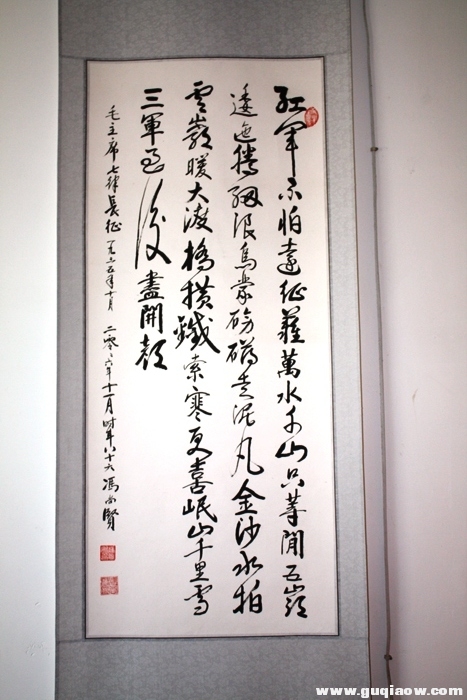 紅軍不怕遠征難萬水千山只等閒五嶺
逶迤騰細浪烏蒙磅礴走泥丸金沙水拍
雲嶺暖大渡橋横鐵索寒更喜岷山千里雪
三軍過後盡開顏
毛主席七律長征 一九三五年十月 二零〇六年十一月 时年八十六 馮尚賢
www.guqiaow.com